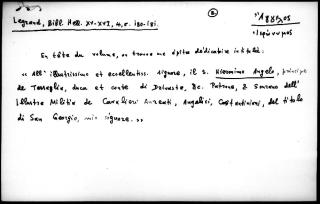 Legrand, Bibl. Hell. XV-XVI, 4, σ. 180-181.
②
Ἄγγελος
Ἱερώνυμος
En tête du volume, on trouve une épître dédicatoire intitulée:
« All' illustrissimo et eccellentiss. signore, il s. Hieronimo Angelo, principe
de Tessaglia, duca et conte di Drivasto, &c. Patrone, & Sovrano dell'
Illustre Militia de Cavalieri Aureati, Angelici, Costantiniani, del titolo
di San Georgio, mio signore. »